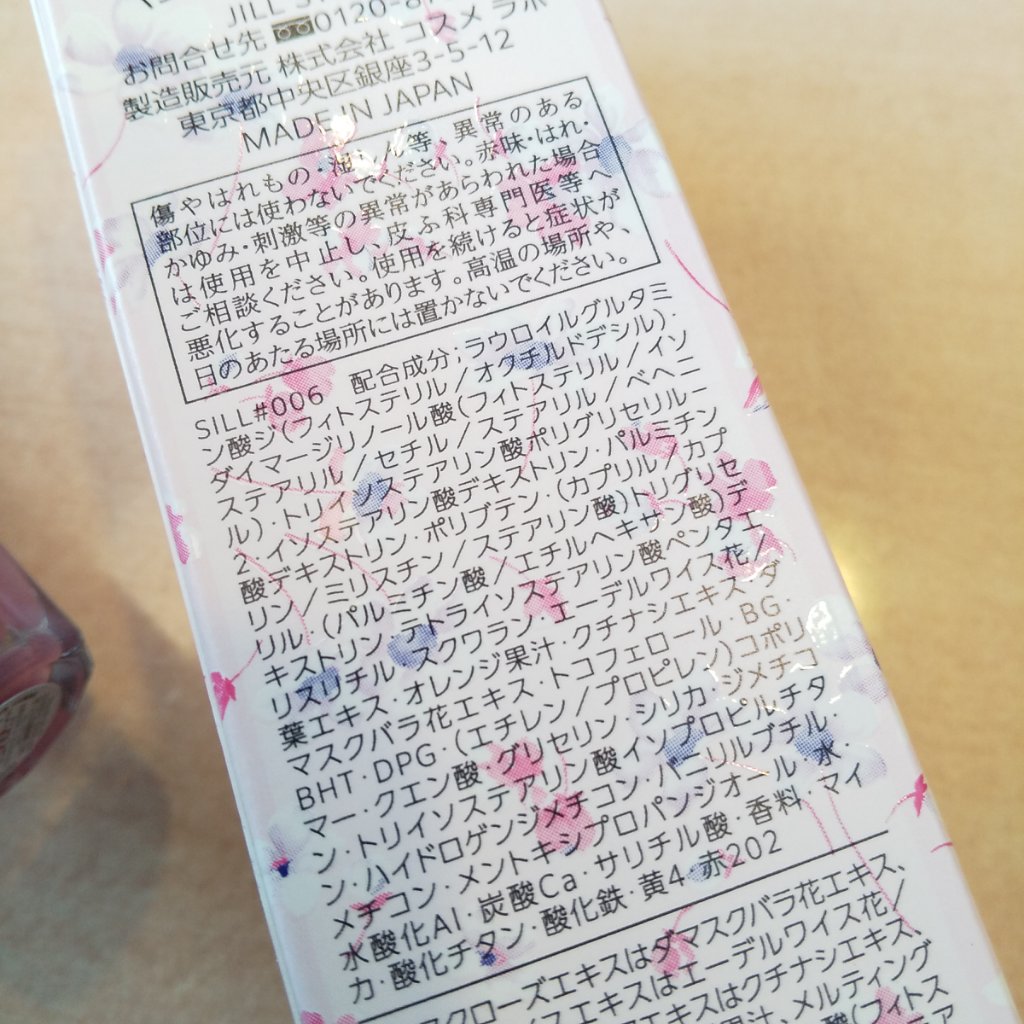 JILL
お問合せ先 0120-8
製造販売元 株式会社 コスメ ラボ
東京都中央区銀座3-5-12
MADE IN JAPAN
傷やはれもの・湿しん等、異常のある
部位には使わないでください。赤味・はれ・
かゆみ・刺激等の異常があらわれた場合
は使用を中止し、皮ふ科専門医等へ
ご相談ください。使用を続けると症状が
悪化することがあります。高温の場所や、
日のあたる場所には置かないでください。
SILL#006 配合成分;ラウロイルグルタミ
ン酸ジ(フィトステリル/オクチルドデシル)・
ダイマージリノール酸(フィトステリル/イソ
ステアリル/セチル/ステアリル/ベヘニ
ル)・トリイソステアリン酸ポリグリセリル-
2・イソステアリン酸デキストリン・パルミチン
酸デキストリン・ポリブテン・(カプリル/カプ
リン/ミリスチン/ステアリン酸)トリグリセ
リル・(パルミチン酸/エチルヘキサン酸)デ
キストリン・テトライソステアリン酸ペンタエ
リスリチル・スクワラン・エーデルワイス花/
葉エキス・オレンジ果汁・クチナシエキス・ダ
マスクバラ花エキス・トコフェロール・BG・
BHT・DPG・(エチレン/プロピレン)コポリ
マー・クエン酸・グリセリン・シリカ・ジメチコ
ン・トリイソステアリン酸イソプロピルチタ
ン・ハイドロゲンジメチコン・バニリルブチル・
メチコン・メントキシプロパンジオール・水・
水酸化Al・炭酸Ca・サリチル酸・香料・マイ
カ・酸化チタン・酸化鉄・黄4・赤202
スクローズエキスはダマスクバラ花エキス、
イスエキスはエーデルワイス花/
エキスはクチナシエキス、
果汁、メルティング
酸(フィトス